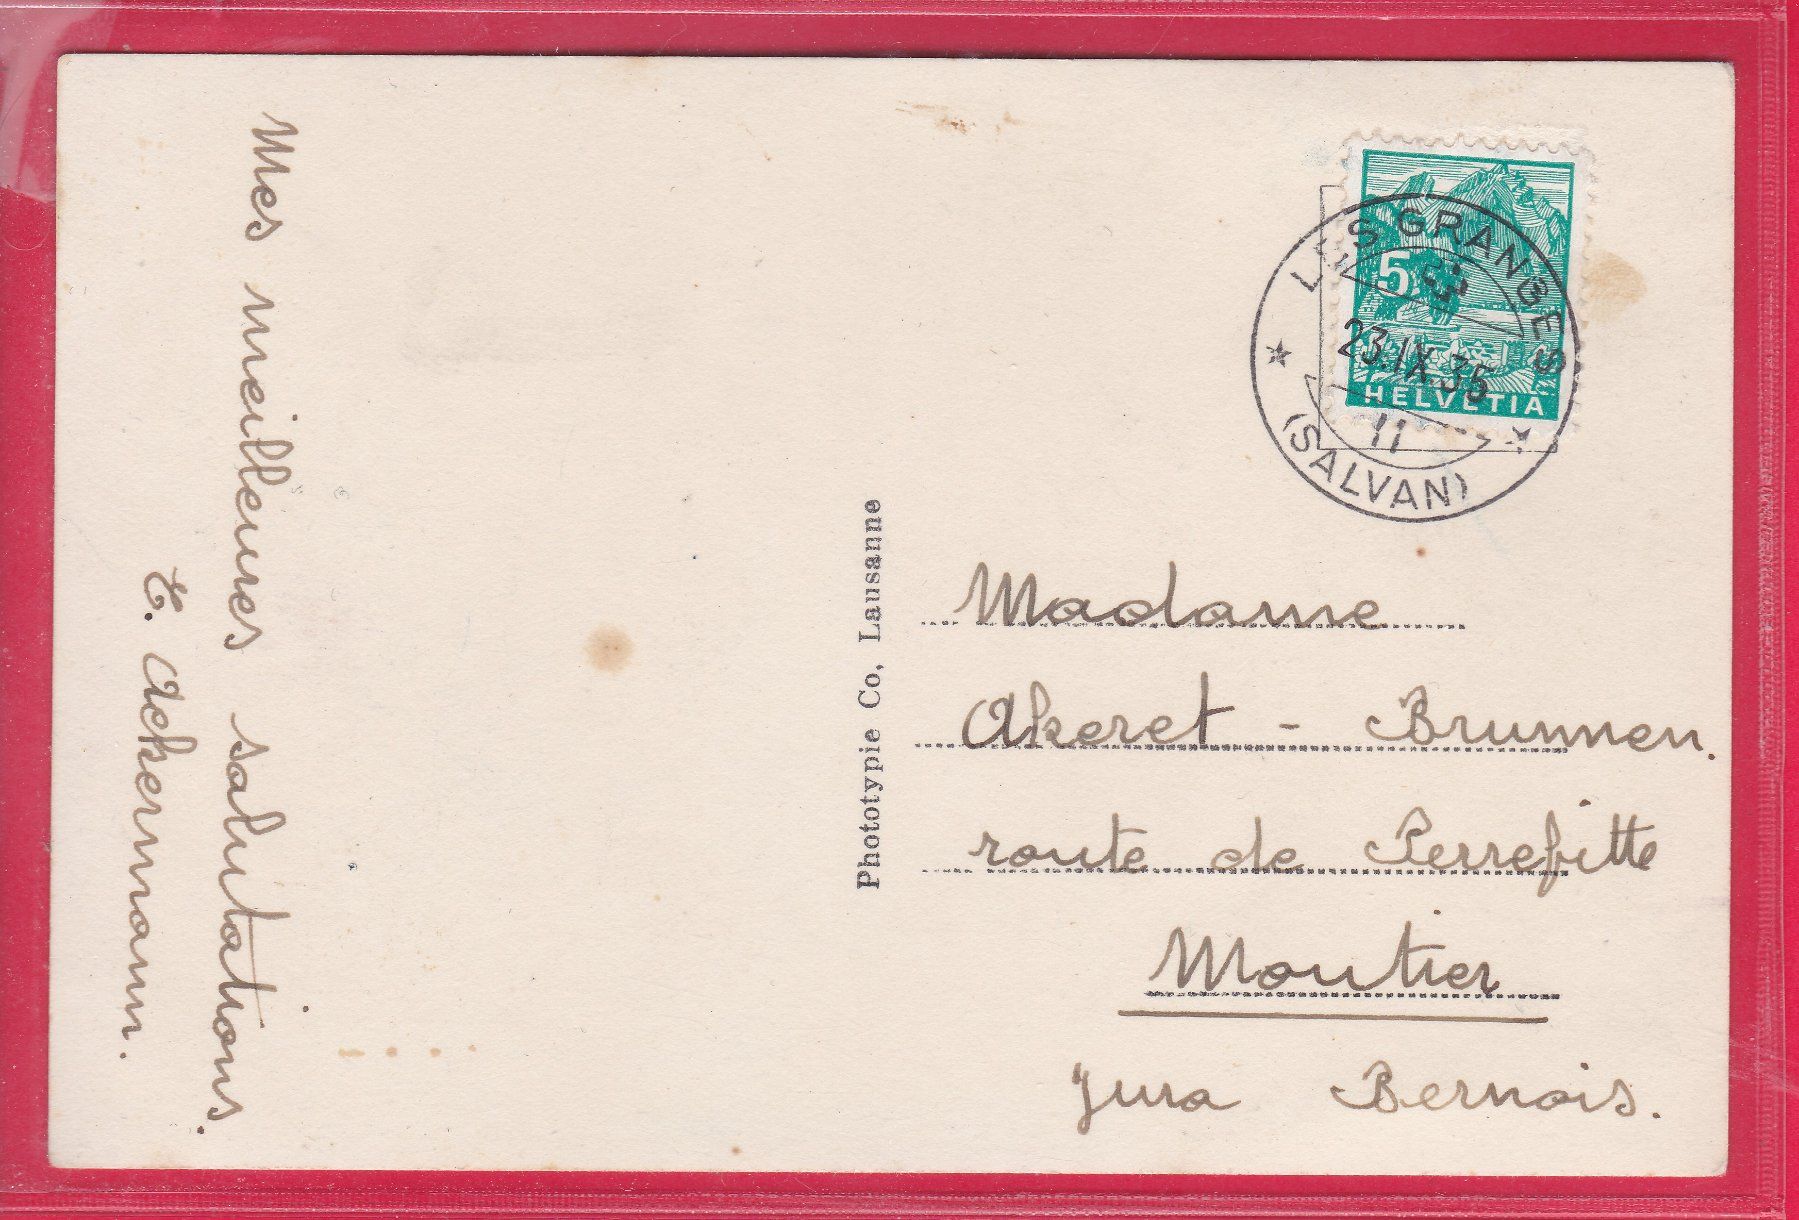 Mes meilleures salutations.
E. Ackermann.
Phototypie Co. Lausanne
5
HELVETIA
LES GRANGES
23.IX.35
11
(SALVAN)
Madame
Akeret - Brunnen.
route de Perrefitte
Moutier
Jura Bernois.